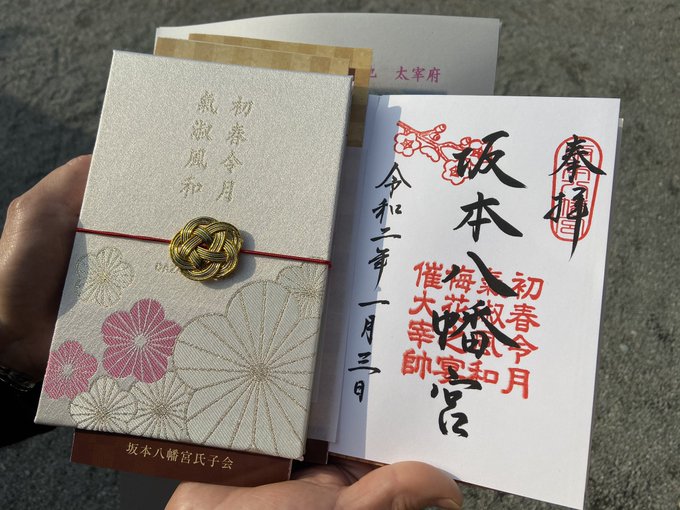 初春令月
氣淑風和
坂本八幡宮氏子会
太宰府
奉拝
坂本八幡宮
初春令月
氣淑風和
梅花之宴
催大宰帥
令和二年一月三日